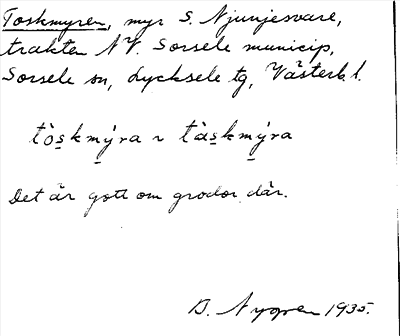 Toskmyren, myr S. Njunjesvare,
trakten N.V. Sorsele municip,
Sorsele sn, Lycksele tg, Västerb. l.
tò̱skmý̱ra ~ tàs̱kmý̱ra
Det är gott om grodor där.
D. Nygren 1935.